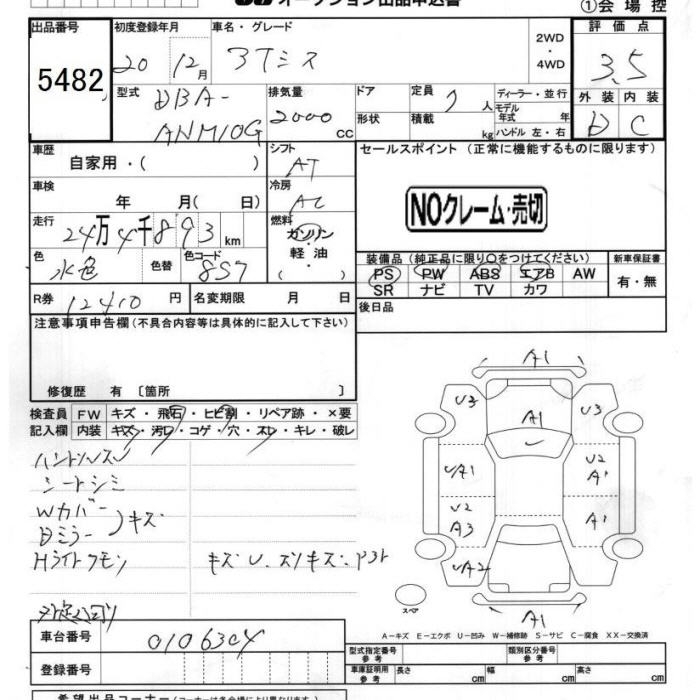 オークション出品申込書 ①会場控
出品番号 初度登録年月 車名・グレード 評価点
5482 20 12月 2WD ・ 4WD 3.5
型式 排気量 ドア 定員 ディーラー・並行 外装 内装
DBA- 2000 cc 7人 モデル年式 年 D C
ANM10G 形状 積載 kg ハンドル 左・右
車歴 シフト セールスポイント (正常に機能するものに限ります)
自家用・( ) AT
車検 冷房
年 月( 日) AC NOクレーム・売切
走行 燃料
24万4千893km ガソリン・軽油・( )
色 色替 色コード 装備品(純正品に限り○をつけてください) 新車保証書
水色 8S7 PS PW ABS エアB AW 有・無
SR ナビ TV カワ
R券 12410円 名変期限 月 日 後日品
注意事項申告欄(不具合内容等は具体的に記入して下さい)
修復歴 有 〔箇所 〕
検査員 FW キズ・飛石・ヒビ割・リペア跡・×要
記入欄 内装 キズ・汚レ・コゲ・穴・スレ・キレ・破レ
ハンドルスレ
シートシミ
Wカバー
Bミラー キズ
Hライトクモリ
A1
U3 A1 U3
UA1 U2 A1
U2 A3 A1
UA2
スペア A1
A-キズ E-エクボ U-凹み W-補修跡 S-サビ C-腐食 XX-交換済
車台番号 0106304
型式指定番号 参考 類別区分番号 参考
登録番号 車庫証明用 参考 長さ cm 幅 cm 高さ cm
希望出品コーナー